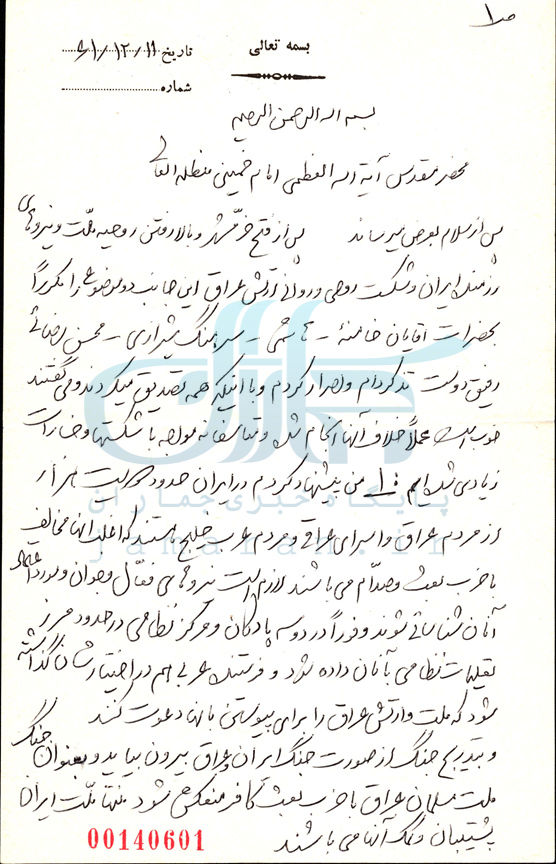 ص ۱
بسمه تعالی
تاریخ ۶۱/۱۲/۱۱
شماره
بسم الله الرحمن الرحیم
محضر مقدس آیة الله العظمی امام خمینی مدظله العالی
پس از سلام بعرض میرساند پس از فتح خرمشهر و بالا رفتن روحیه ملت و نیروهای
رزمنده ایران و شکست روحی و روانی ارتش عراق این جانب دو موضوع را مکرراً
بحضرات آقایان خامنه‌ای - هاشمی - سرهنگ شیرازی - محسن رضائی
رفیق دوست تذکر دادم و اصرار کردم و با اینکه همه تصدیق میکردند و می گفتند
خوب است عملاً خلاف آنها انجام شد و متأسفانه مواجه با شکستها و خسارات
زیادی شده ایم ۱- من پیشنهاد کردم در ایران حدود دویست هزار
از مردم عراق و اسرای عراقی و مردم عرب خلیج هستند که اغلب آنها مخالف
با حزب بعث و صدّام می باشند لازم است نیروهای فعّال و جوان و مورد اعتماد
آنان شناسائی شوند و فوراً در دو سه پادگان و مرکز نظامی در حدود مرز
تعلیمات نظامی بآنان داده شود و فرستنده عربی هم در اختیارشان گذاشته
شود که ملت و ارتش عراق را برای پیوستن بآنها دعوت کنند
و بتدریج جنگ از صورت جنگ ایران و عراق بیرون بیاید و بعنوان جنگ
ملت مسلمان عراق با حزب بعث کافر منعکس شود منتها ملّت ایران
پشتیبان و کمک آنها می باشند
00140601
جماران
پایگاه خبری جماران
jamaran.ir